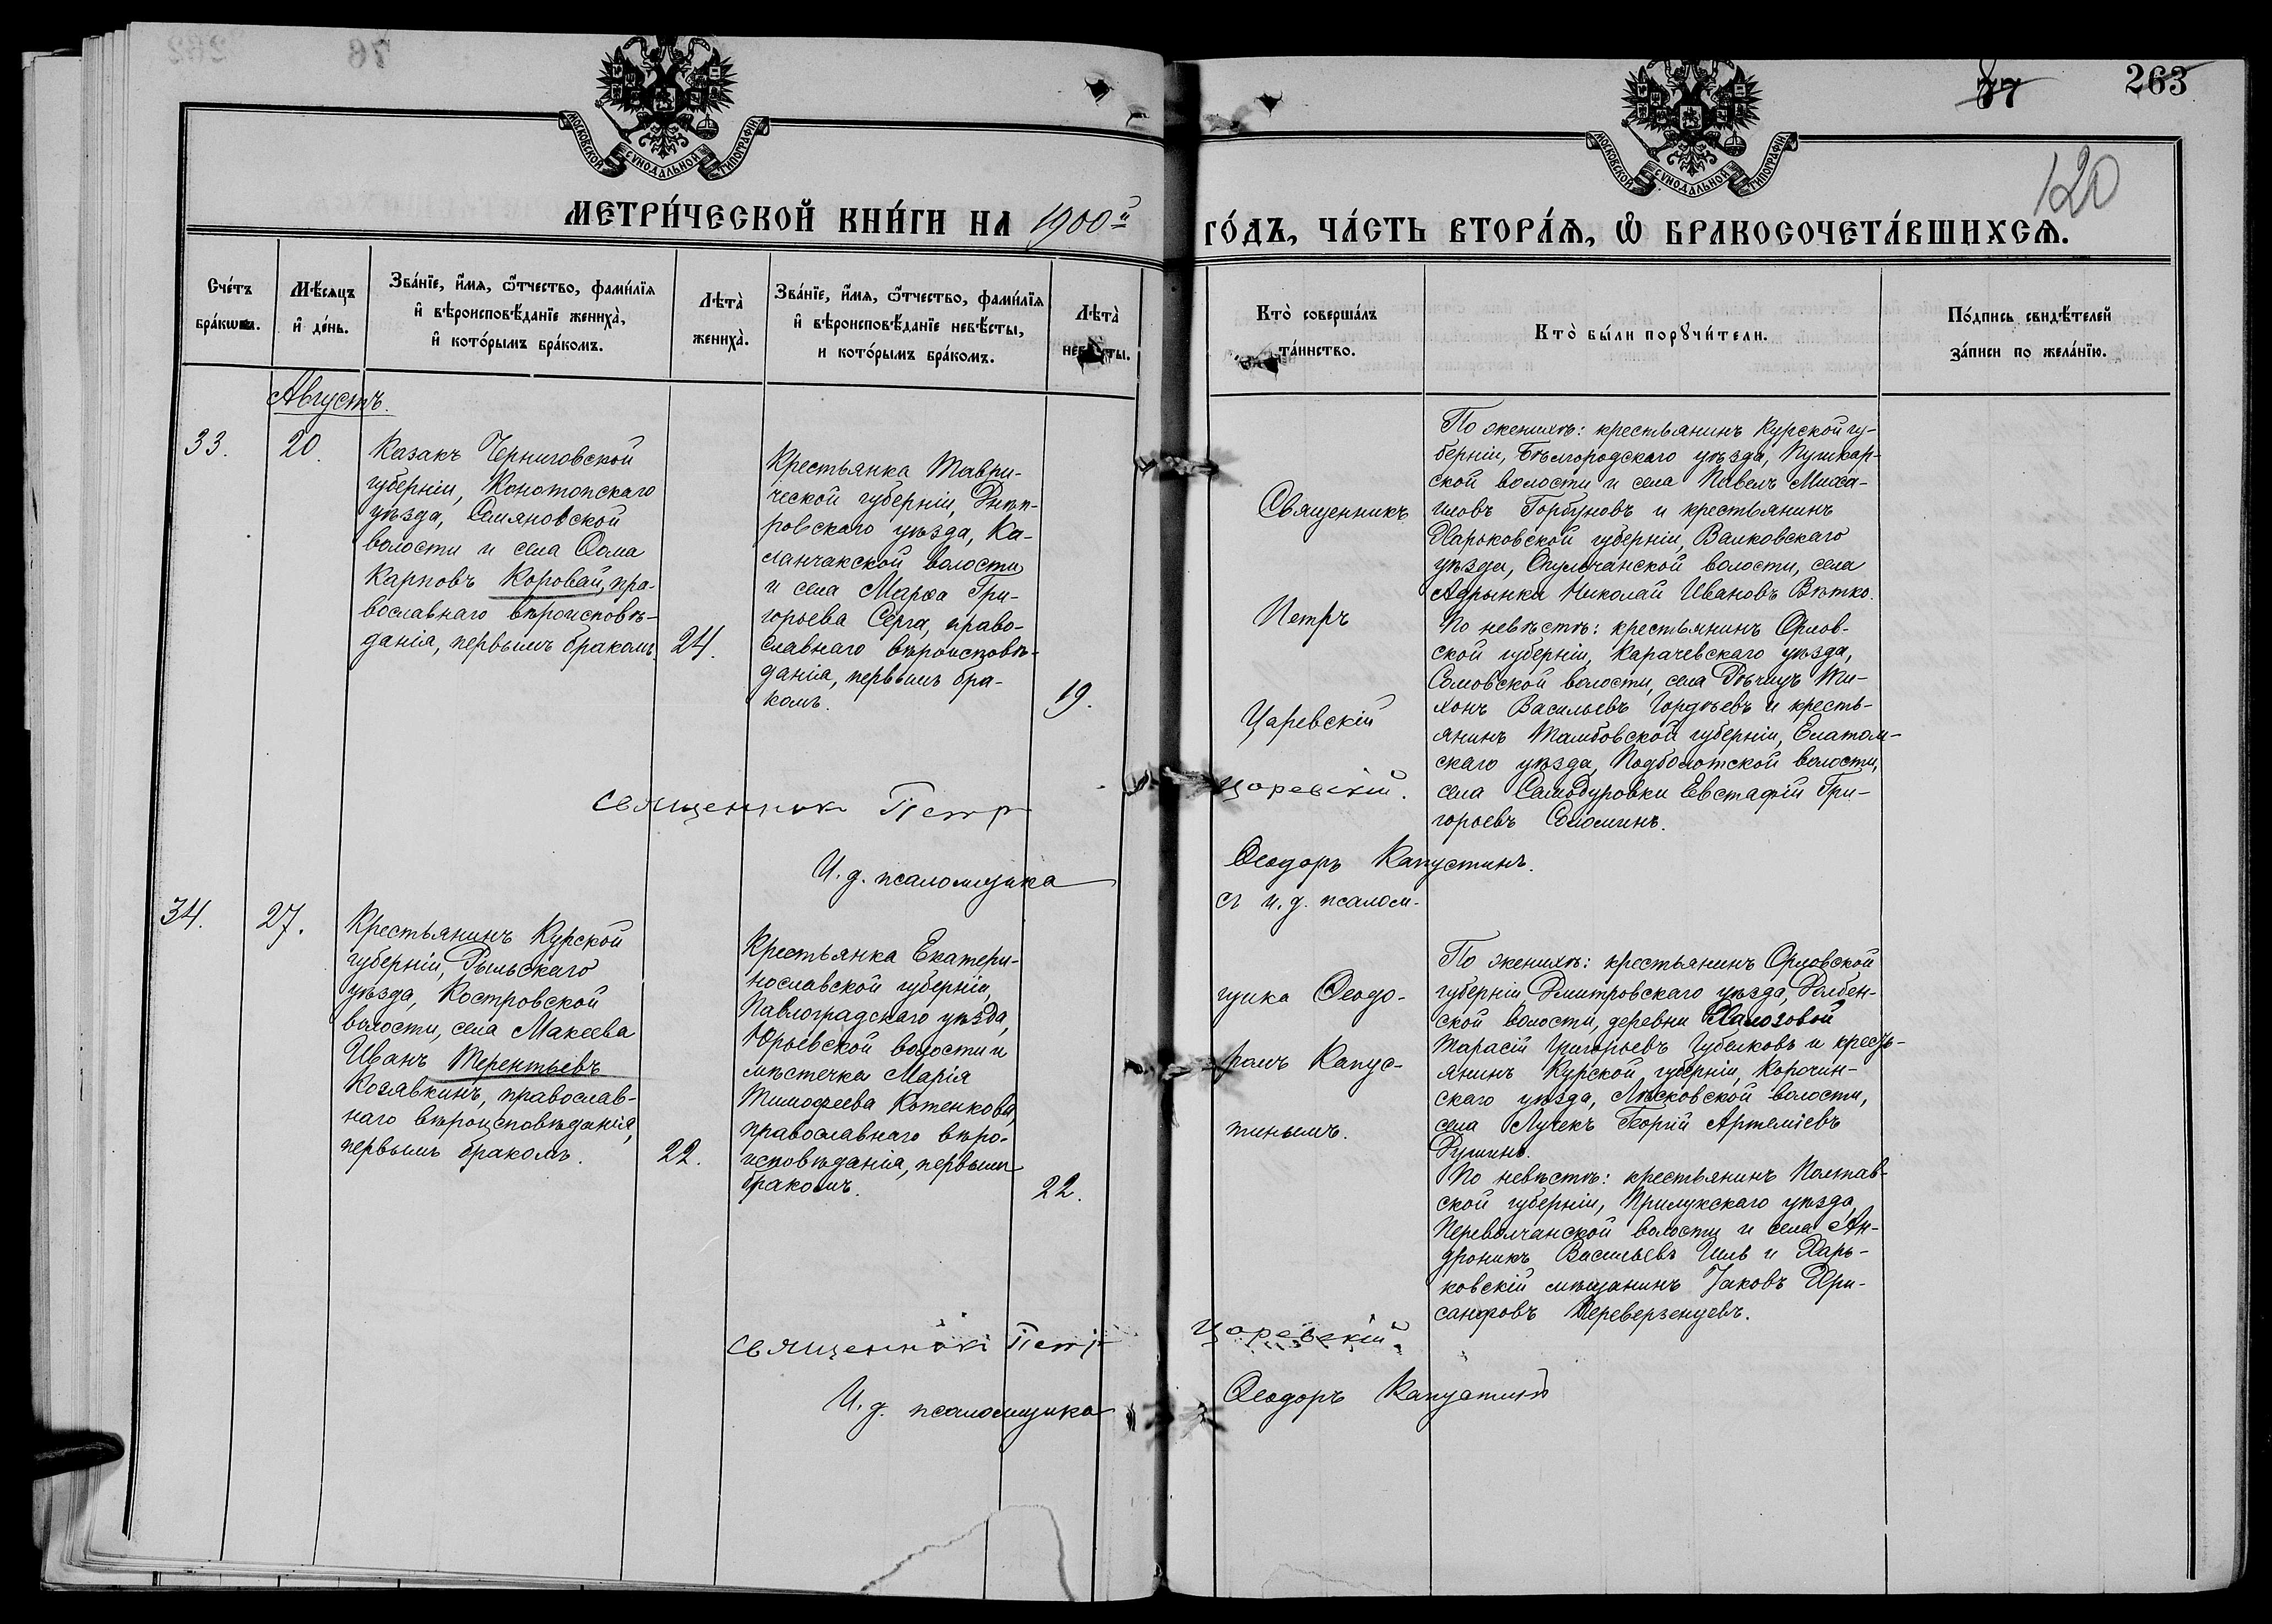 263
77
120
МОСКОВСКОЙ СѴНОДАЛЬНОЙ ТИПОГРАФІИ.
МОСКОВСКОЙ СѴНОДАЛЬНОЙ ТИПОГРАФІИ.
МЕТРИ́ЧЕСКОЙ КНИ́ГИ НА 1900й
ГО́ДЪ, ЧА́СТЬ ВТОРА́Ѧ, Ѡ БРАКОСОЧЕТА́ВШИХСѦ.
Сче́тъ
бра́кѡвъ.
Мѣ́сяцъ
и де́нь.
Зва́нїе, и́мя, ѻ́тчество, фами́лїя
и вѣроисповѣ́данїе жениха̀,
и кото́рымъ бра́комъ.
Лѣта̀
жениха̀.
Зва́нїе, и́мя, ѻ́тчество, фами́лїя
и вѣроисповѣ́данїе невѣ́сты,
и кото́рымъ бра́комъ.
Лѣта̀
невѣ́сты.
Кто̀ соверша́лъ
та́инство.
Кто̀ бы́ли порꙋчи́тели.
По́дпись свидѣ́телей
за́писи по жела́нїю.
Августъ.
33.
20.
Казакъ Черниговской
губерніи, Конотопскаго
уѣзда, Семяновской
волости и села Ѳома
Карповъ Коровай, пра-
вославнаго вѣроисповѣ-
данія, первымъ бракомъ.
24.
Крестьянка Таври-
ческой губерніи, Днѣп-
ровскаго уѣзда, Ка-
ланчакской волости
и села Марѳа Гри-
горьева Серга, право-
славнаго вѣроисповѣ-
данія, первымъ бра-
комъ.
19.
Священникъ
Петръ
Царевскій
По женихѣ: крестьянинъ Курской гу-
берніи, Бѣлгородскаго уѣзда, Пушкар-
ской волости и села Павелъ Миха-
иловъ Горбуновъ и крестьянинъ
Харьковской губерніи, Валковскаго
уѣзда, Огульчанской волости, села
Адрынки Николай Ивановъ Вѣтко.
По невѣстѣ: крестьянинъ Орлов-
ской губерніи, Карачевскаго уѣзда,
Сомовской волости, села Рѣчицъ Ти-
хонъ Васильевъ Гордѣевъ и кресть-
янинъ Тамбовской губерніи, Елатом-
скаго уѣзда, Подболотской волости,
села Самодуровки Евстафій Гри-
горьевъ Соломинъ.
Священникъ Петръ Царевскій.
И. д. псаломщика Ѳеодоръ Капустинъ.
34.
27.
Крестьянинъ Курской
губерніи, Рыльскаго
уѣзда, Костровской
волости, села Макеева
Иванъ Терентьевъ
Козявкинъ, православ-
наго вѣроисповѣданія,
первымъ бракомъ.
22.
Крестьянка Екатери-
нославской губерніи,
Павлоградскаго уѣзда,
Юрьевской волости и
мѣстечка Марія
Тимофеева Котенкова,
православнаго вѣро-
исповѣданія, первымъ
бракомъ.
22.
съ и. д. псалом-
щика Ѳеодо-
ромъ Капус-
тинымъ.
По женихѣ: крестьянинъ Орловской
губерніи Дмитровскаго уѣзда, Долбен-
ской волости, деревни Халозовой
Тарасій Григорьевъ Губелковъ и кресть-
янинъ Курской губерніи, Корочин-
скаго уѣзда, Лѣсковской волости,
села Лучекъ Георгій Артеміевъ
Душинъ.
По невѣстѣ: крестьянинъ Полтав-
ской губерніи, Прилукскаго уѣзда,
Переволчанской волости и села Ан-
дроникъ Васильевъ Циль и Харь-
ковскій мѣщанинъ Іаковъ Хри-
санфовъ Переверзенцевъ.
Священникъ Петръ Царевскій.
И. д. псаломщика Ѳеодоръ Капустинъ